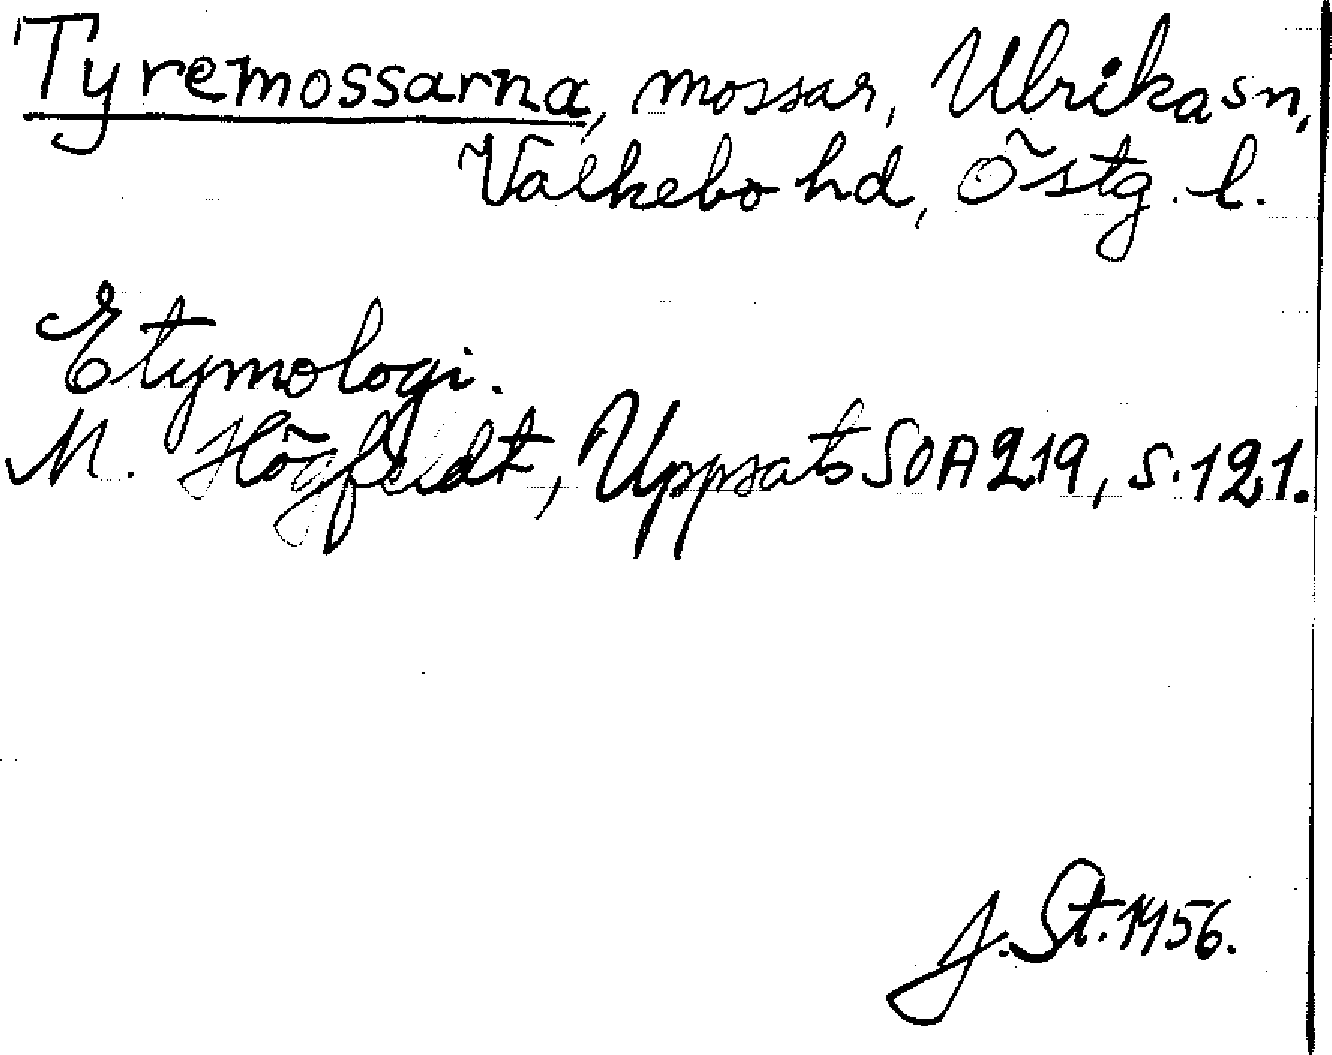 Tyremossarna, mossar, Ulrika sn,
Valkebo hd, Östg. l.
Etymologi.
M. Högfeldt, Uppsats SOA 219, s. 121.
J. St. 1956.